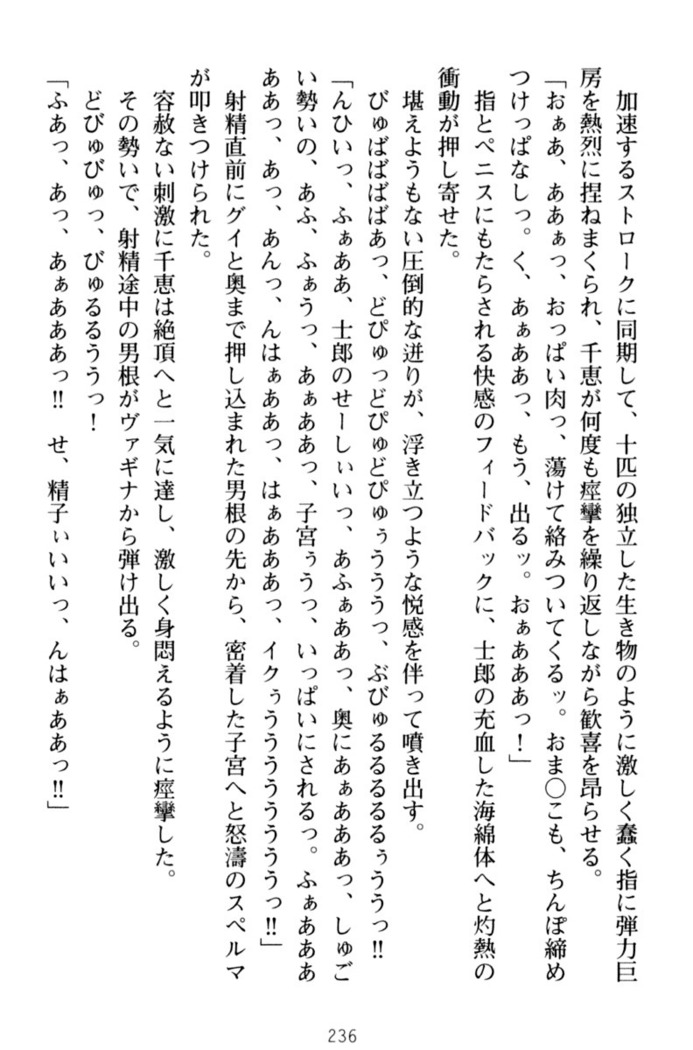 加速するストロークに同期して、十匹の独立した生き物のように激しく蠢く指に弾力巨
房を熱烈に捏ねまくられ、千恵が何度も痙攣を繰り返しながら歓喜を昂らせる。
「おぁあ、ああぁっ、おっぱい肉っ、蕩けて絡みついてくるッ。おま〇こも、ちんぽ締め
つけっぱなしっ。く、あぁああっ、もう、出るッ。おぁあああっ！」
　指とペニスにもたらされる快感のフィードバックに、士郎の充血した海綿体へと灼熱の
衝動が押し寄せた。
　堪えようもない圧倒的な迸りが、浮き立つような悦感を伴って噴き出す。
　びゅばばばばあっ、どぴゅっどぴゅどぴゅぅうううっ、ぶびゅるるるるぅううっ‼
「んひいっ、ふぁああ、士郎のせーしぃいっ、あふぁああっ、奥にあぁあああっ、しゅご
い勢いの、あふ、ふぁうっ、あぁああっ、子宮ぅうっ、いっぱいにされるっ。ふぁあああ
ああっ、あっ、あんっ、んはぁああっ、はぁあああっ、イクぅうううううううっ‼」
　射精直前にグイと奥まで押し込まれた男根の先から、密着した子宮へと怒濤のスペルマ
が叩きつけられた。
　容赦ない刺激に千恵は絶頂へと一気に達し、激しく身悶えるように痙攣した。
　その勢いで、射精途中の男根がヴァギナから弾け出る。
　どびゅびゅっ、びゅるるううっ！
「ふあっ、あっ、あぁあああっ‼　せ、精子ぃいいっ、んはぁああっ‼」
236